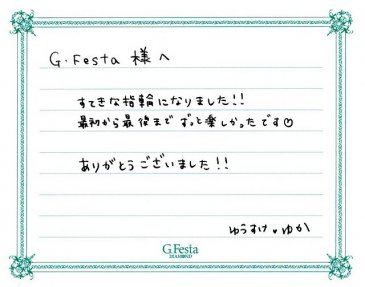 G.Festa 様へ
すてきな指輪になりました!!
最初から最後まで ずっと楽しかったです♡
ありがとうございました!!
ゆうすけ ♥ ゆか
G.Festa
DIAMOND